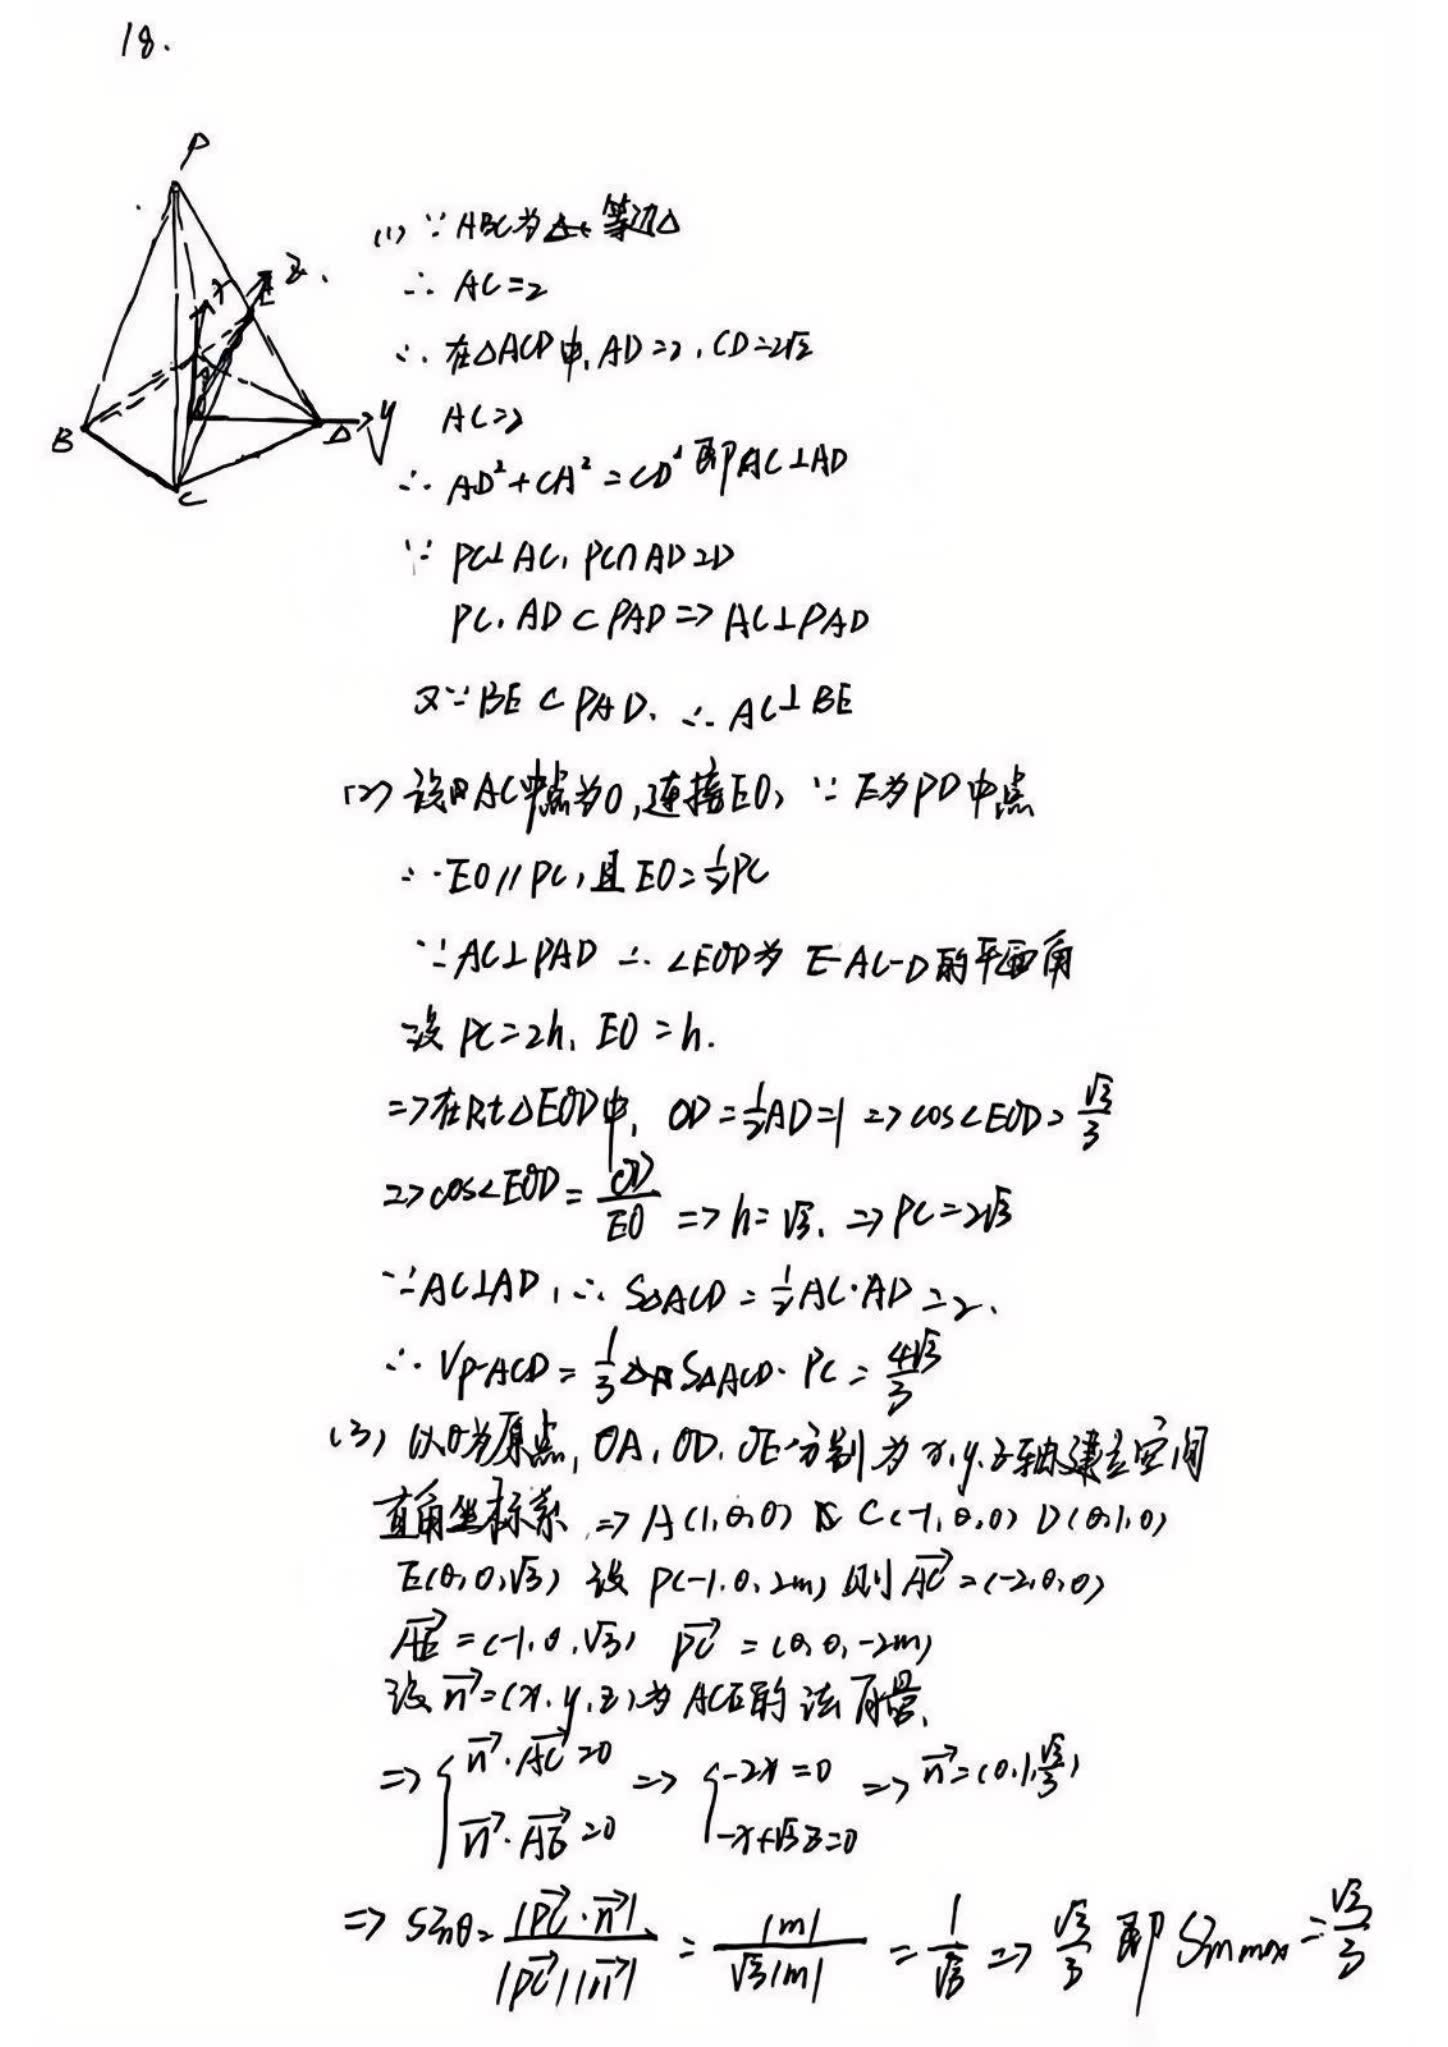 18.
P
E
z.
x
B
D
y
C
(1) ∵ ABC为 等边△
∴ AC=2
∴ 在△ACD中, AD=2, CD=2√2
AC=2
∴ AD²+CA²=CD² 即AC⊥AD
∵ PC⊥AC, PC∩AD=D
PC, AD⊂PAD => AC⊥PAD
又∵BE⊂PAD. ∴ AC⊥BE
(2) 设AC中点为O,连接EO, ∵ E为PD中点
∴EO//PC,且EO=1/2PC
∵AC⊥PAD ∴∠EOD为 E-AC-D的平面角
设PC=2h, EO=h.
=>在Rt△EOD中, OD=1/2AD=1 => cos∠EOD=√3/3
=>cos∠EOD=OD/EO => h=√3. => PC=2√3
∵AC⊥AD, ∴ S△ACD=1/2AC·AD=2.
∴ VP-ACD=1/3 S△ACD·PC=4√3/3
(3) 以O为原点, OA, OD, OE分别为x,y,z轴建立空间
直角坐标系 => A(1,0,0) C(-1,0,0) D(0,1,0)
E(0,0,√3) 设 P(-1,0,2m) 则AC→=(-2,0,0)
AE→=(-1,0,√3) PC→=(0,0,-2m)
设n→=(x,y,z)为ACE的法向量.
=> {n→·AC→=0 n→·AE→=0 => {-2x=0 -x+√3z=0 => n→=(0,1,√3/3)
=> sinθ=|PC→·n→|/|PC→||n→| = |m|/√3|m| = 1/√3 => √3/3 即 Sinmax=√3/3